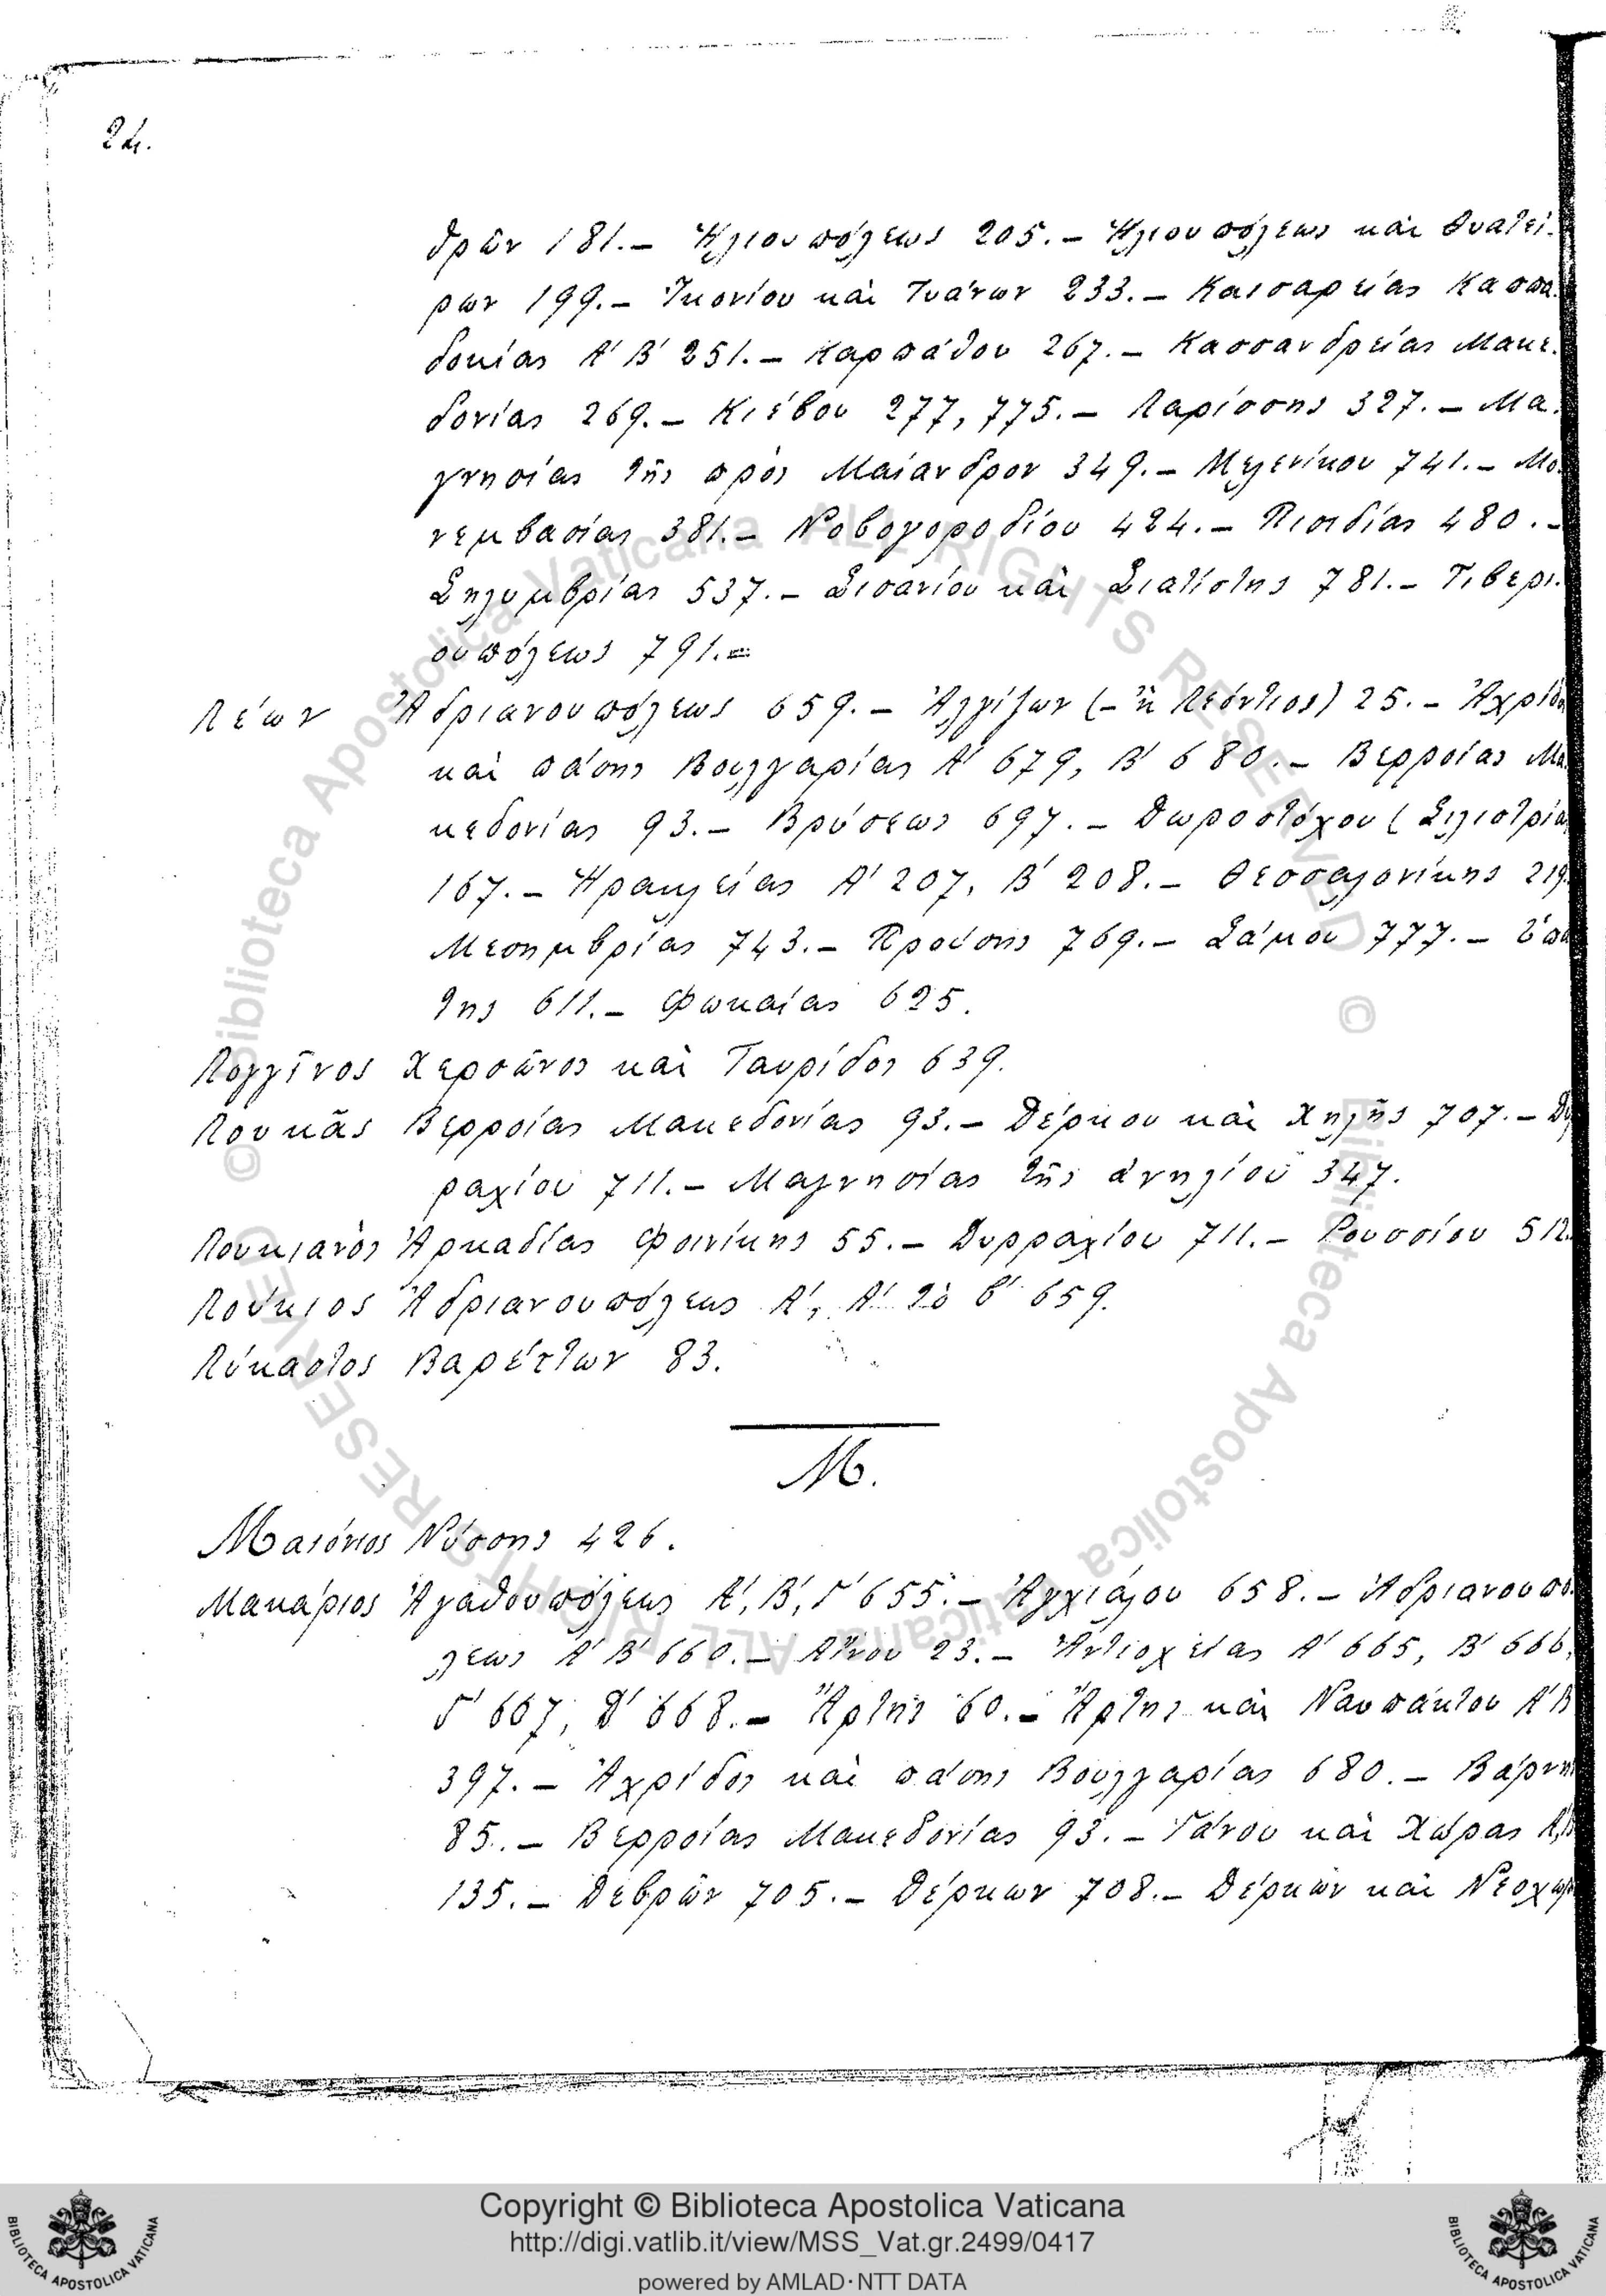 24.
δρῶν 181.– Ἡλιουπόλεως 205.– Ἡλιουπόλεως καὶ Θυατεί-
ρων 199.– Ἰκονίου καὶ Τυάνων 233.– Καισαρείας Καππα-
δοκίας Α' Β' 251.– Καρπάθου 267.– Κασσανδρείας Μακε-
δονίας 269.– Κιέβου 277, 775.– Λαρίσσης 327.– Μα-
γνησίας τῆς πρὸς Μαίανδρον 349.– Μελενίκου 741.– Μο-
νεμβασίας 381.– Νοβογοροδίου 424.– Πισιδίας 480.–
Σηλυμβρίας 537.– Σισανίου καὶ Σιατίστης 781.– Τιβερι-
ουπόλεως 791.=
Λέων Ἀδριανουπόλεως 659.– Ἀλγίζων (– ἢ Λεόντιος) 25.– Ἀχρίδος
καὶ πάσης Βουλγαρίας Α' 679, Β' 680.– Βερροίας Μα-
κεδονίας 93.– Βρύσεως 697.– Δωροστόχου (Σιλιστρίας
167.– Ἡρακλείας Α' 207, Β' 208.– Θεσσαλονίκης 219.
Μεσημβρίας 743.– Προύσης 769.– Σάμου 777.– Ὑπά
της 611.– Φωκαίας 625.
Λογγῖνος Χερσῶνος καὶ Ταυρίδος 639.
Λουκᾶς Βερροίας Μακεδονίας 93.– Δέρκου καὶ Χηλῆς 707.– Δυρ
ραχίου 711.– Μαγνησίας τῆς ἀνηλίου 347.
Λουκιανὸς Ἀρκαδίας Φοινίκης 55.– Δυρραχίου 711.– Ῥουσσίου 512.
Λούκιος Ἀδριανουπόλεως Α', Α' τὸ β' 659.
Λύκαστος Βαρέττων 83.
Μ.
Μαιόνιος Νύσσης 426.
Μακάριος Ἀγαθουπόλεως Α', Β', Γ' 655.– Ἀγχιάλου 658.– Ἀδριανουπό
λεως Α' Β' 660.– Αἴνου 23.– Ἀντιοχείας Α' 665, Β' 666,
Γ' 667, Δ' 668.– Ἄρτης 60.– Ἄρτης καὶ Ναυπάκτου Α' Β
397.– Ἀχρίδος καὶ πάσης Βουλγαρίας 680.– Βάρνης
85.– Βερροίας Μακεδονίας 93.– Γάνου καὶ Χώρας Α', Β
135.– Δεβρῶν 705.– Δέρκων 708.– Δέρκων καὶ Νεοχωρ
© Biblioteca Apostolica Vaticana ALL RIGHTS RESERVED © Biblioteca Apostolica Vaticana ALL RIGHTS RESERVED
Copyright © Biblioteca Apostolica Vaticana
http://digi.vatlib.it/view/MSS_Vat.gr.2499/0417
powered by AMLAD·NTT DATA
BIBLIOTECA APOSTOLICA VATICANA
BIBLIOTECA APOSTOLICA VATICANA